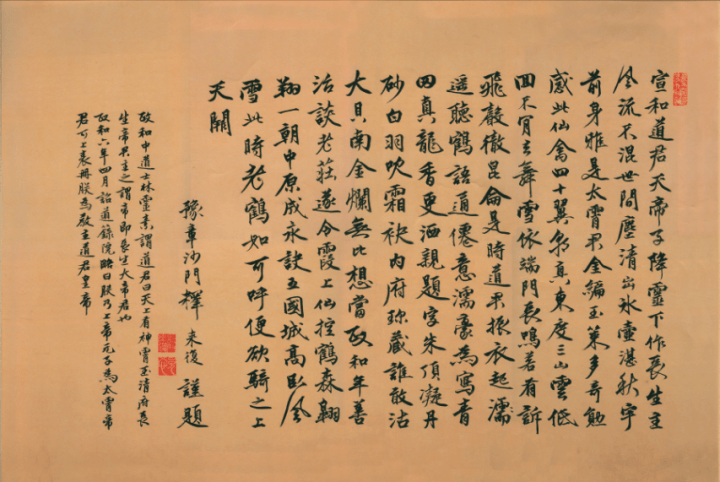 宣和道君天帝子降靈下作長生主
風流不混世間塵清出冰壺湛秋宇
前身雅是太霄君金編玉策多奇勳
感此仙禽四十翼 真東度三山雲低
回不肯去舞雪依端門長鳴若有訴
飛散徹昆侖是時道君振衣起濡
遥聽鶴語道僊意濡豪為寫青
田真龍香更洒親題字朱頂凝丹
砂白羽吹霜袂内府珎藏誰敢沽
大貝南金爛無比想當政和年善
治談老莊遂令霞上仙控鶴森翱
翔一朝中原成永訣五國城高臥風
雪此時老鶴如可呼便欲騎之上
天關
豫章沙門釋 来復 謹題
政和中道士林靈素謂道君曰天上有神霄玉清府長
生帝君主之謂帝即長生大帝君也
政和六年四月詔道錄院 曰朕乃上帝元子為太霄帝
君可上表冊朕為教主道君皇帝